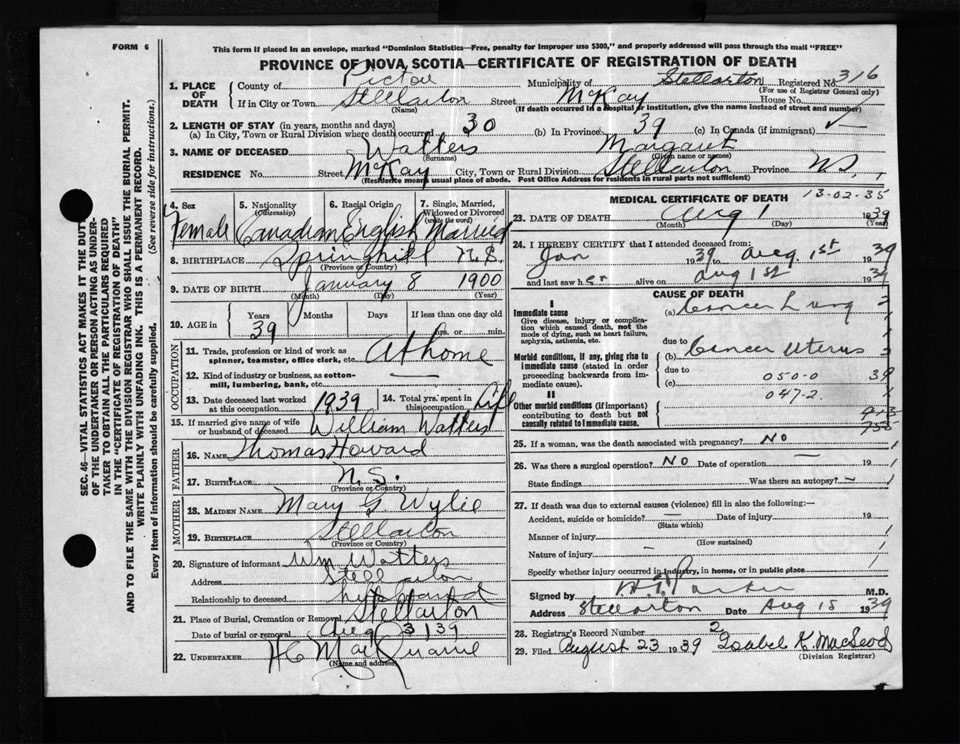 FORM 6
This form if placed in an envelope, marked "Dominion Statistics—Free, penalty for improper use $300," and properly addressed will pass through the mail "FREE"
PROVINCE OF NOVA SCOTIA—CERTIFICATE OF REGISTRATION OF DEATH
SEC. 46—VITAL STATISTICS ACT MAKES IT THE DUTY
OF THE UNDERTAKER OR PERSON ACTING AS UNDER-
TAKER TO OBTAIN ALL THE PARTICULARS REQUIRED
IN THE "CERTIFICATE OF REGISTRATION OF DEATH"
AND TO FILE THE SAME WITH THE DIVISION REGISTRAR WHO SHALL ISSUE THE BURIAL PERMIT.
WRITE PLAINLY WITH UNFADING INK. THIS IS A PERMANENT RECORD.
Every item of information should be carefully supplied. (See reverse side for instructions.)
1. PLACE OF DEATH
County of Pictou Municipality of Stellarton Registered No. 316
(For use of Registrar General only)
If in City or Town Stellarton Street McKay House No.
(Name) (If death occurred in a hospital or institution, give the name instead of street and number)
2. LENGTH OF STAY (in years, months and days)
(a) In City, Town or Rural Division where death occurred 30 (b) In Province 39 (c) In Canada (if immigrant)
3. NAME OF DECEASED Watters Margaret
(Surname) (Given name or names)
RESIDENCE No. Street McKay City, Town or Rural Division Stellarton Province N.S.
(Residence means usual place of abode. Post Office Address for residents in rural parts not sufficient)
4. Sex Female
5. Nationality (Citizenship) Canadian
6. Racial Origin English
7. Single, Married, Widowed or Divorced (write the word) Married
8. BIRTHPLACE Springhill N.S.
(Province or Country)
9. DATE OF BIRTH January 8 1900
(Month) (Day) (Year)
10. AGE in Years Months Days If less than one day old
39 hrs. or min.
OCCUPATION
11. Trade, profession or kind of work as spinner, teamster, office clerk, etc. At home
12. Kind of industry or business, as cotton-mill, lumbering, bank, etc. —
13. Date deceased last worked at this occupation 1939
14. Total yrs. spent in this occupation Life
15. If married give name of wife or husband of deceased William Watters
FATHER
16. NAME Thomas Howard
17. BIRTHPLACE N.S.
(Province or Country)
MOTHER
18. MAIDEN NAME Mary G Wylie
19. BIRTHPLACE Stellarton
(Province or Country)
20. Signature of informant Wm Watters
Address Stellarton
Relationship to deceased husband
21. Place of Burial, Cremation or Removal Stellarton
Date of burial or removal Aug 3 1939
22. UNDERTAKER
(Name and address)
MEDICAL CERTIFICATE OF DEATH
13-02-35
23. DATE OF DEATH Aug 1 1939
(Month) (Day) (Year)
24. I HEREBY CERTIFY that I attended deceased from:
Jan 1939 to Aug. 1st 1939
and last saw her alive on Aug 1st 1939
CAUSE OF DEATH
I
Immediate cause
Give disease, injury or complication which caused death, not the mode of dying, such as heart failure, asphyxia, asthenia, etc.
(a) Cancer Lung
due to
Morbid conditions, if any, giving rise to immediate cause (stated in order proceeding backwards from immediate cause).
(b) Cancer Uterus
due to
(c) 050-0 39
II
047-2
Other morbid conditions (if important) contributing to death but not causally related to immediate cause.
755
25. If a woman, was the death associated with pregnancy? No
26. Was there a surgical operation? No Date of operation — 19
State findings Was there an autopsy? —
27. If death was due to external causes (violence) fill in also the following:—
Accident, suicide or homicide? — Date of injury 19
(State which)
Manner of injury
(How sustained)
Nature of injury —
Specify whether injury occurred in industry, in home, or in public place
Signed by Parker M.D.
Address Stellarton Date Aug 15 1939
28. Registrar's Record Number 2
29. Filed August 23 1939 Isabel K. MacLeod
(Division Registrar)